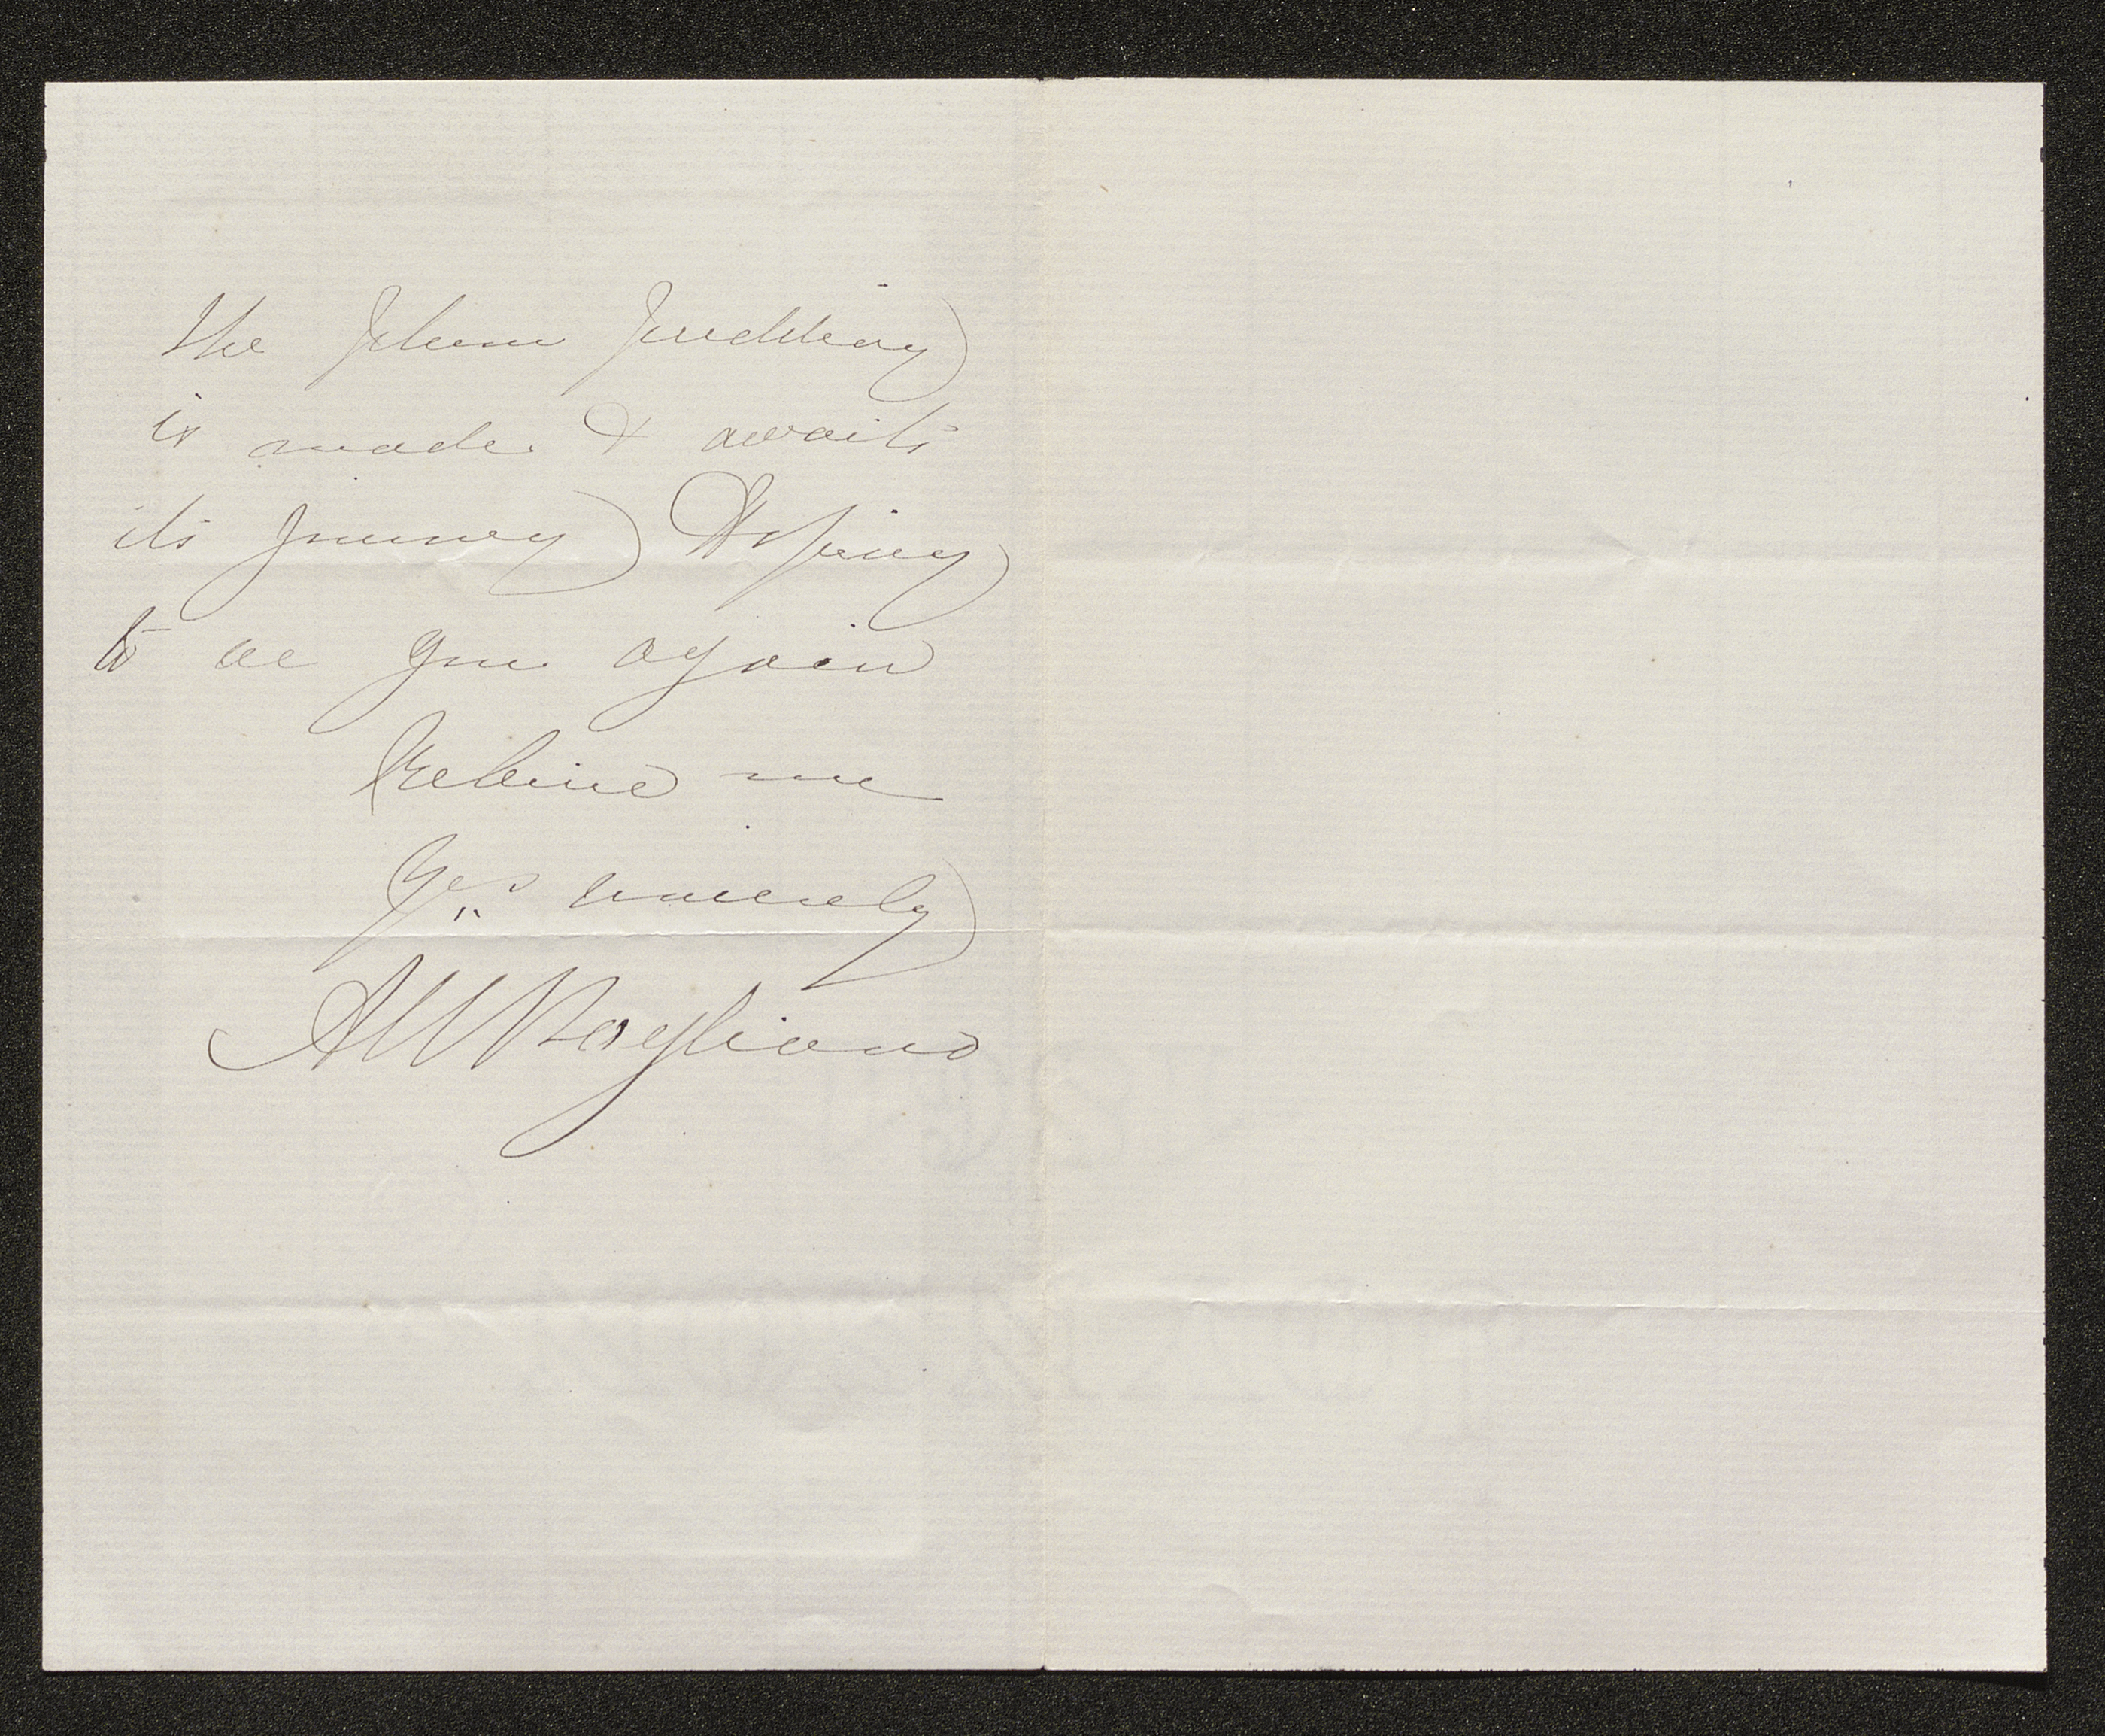 the plum pudding
is made & awaits
its journey Hoping
to see you again
Believe me
Yrs sincerely